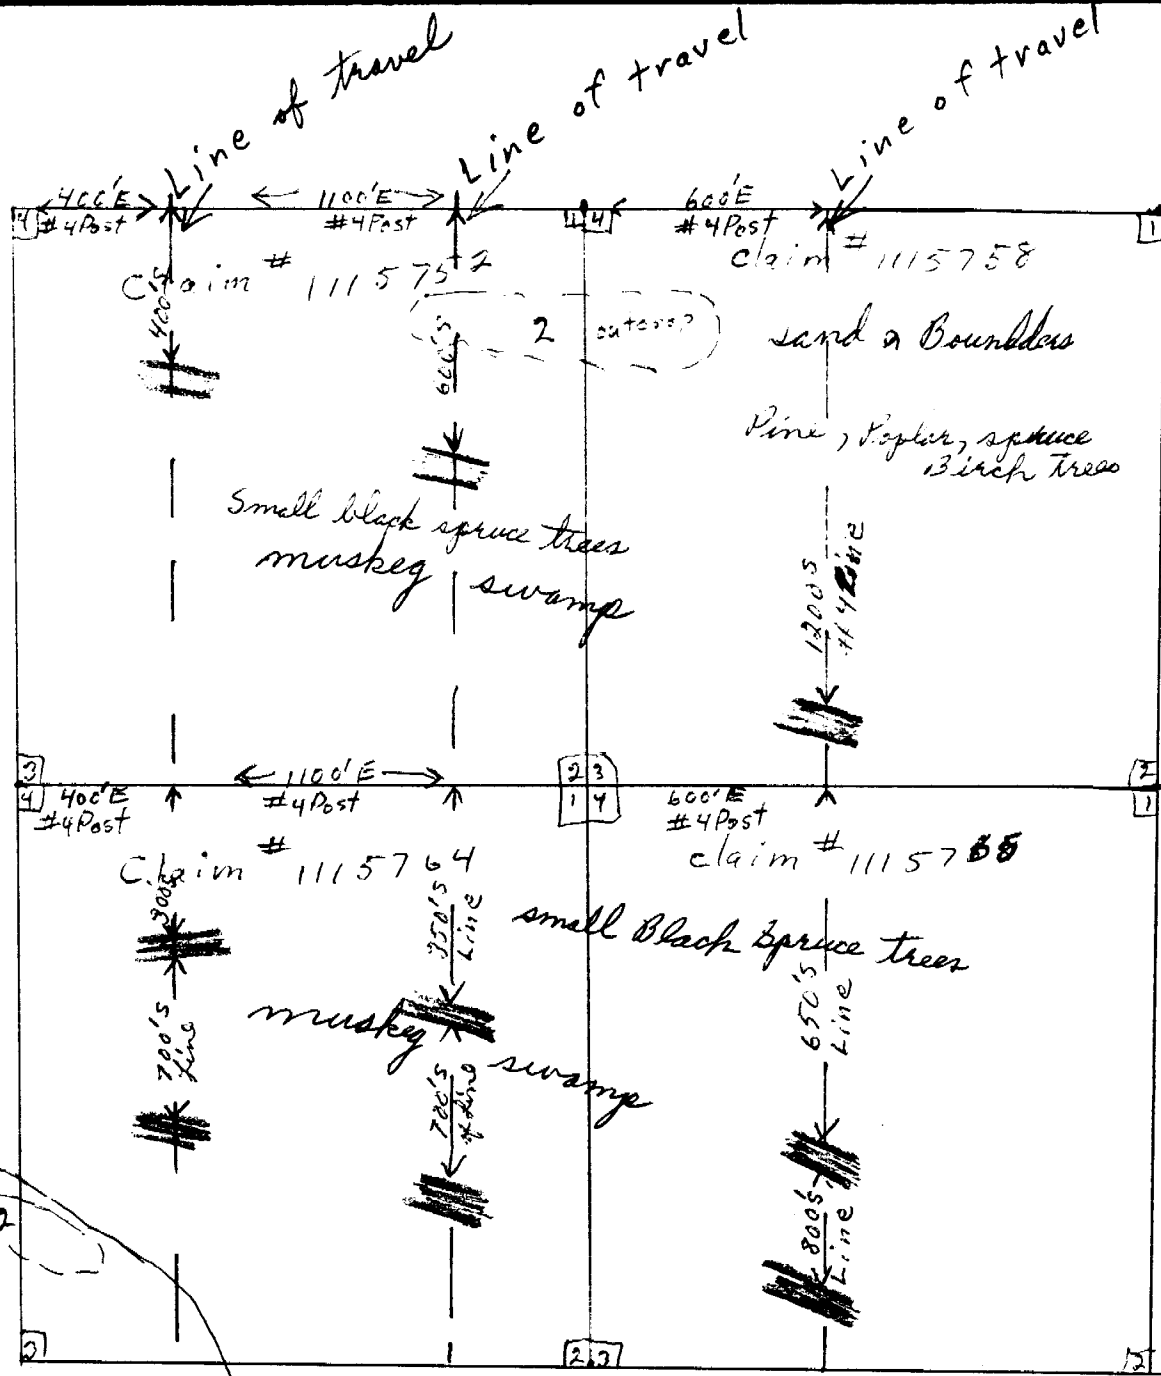 Line of travel
Line of travel
Line of travel
400'E
#4 Post
1100'E
#4 Post
600'E
#4 Post
4
1 4
1
Claim # 1115752
claim # 1115758
400'S
600'S
2 outcrop
sand & Bounlders
Pine, Poplar, spruce
Birch trees
Small black spruce trees
muskeg swamp
1200S
#4 Line
3
4
2 3
1 4
2
1
400'E
#4 Post
1100'E
#4 Post
600'E
#4 Post
Claim # 1115764
claim #
300S
350'S
Line
small Black Spruce trees
650'S
Line
muskeg swamp
700'S
Line
700'S
Line
800S'
Line
2
3
2 3
2